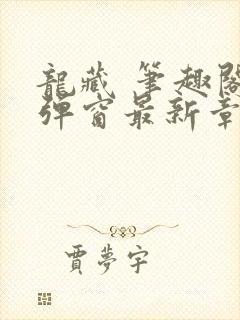 龍藏 筆趣閣
彈窗最新章
賈夢宇